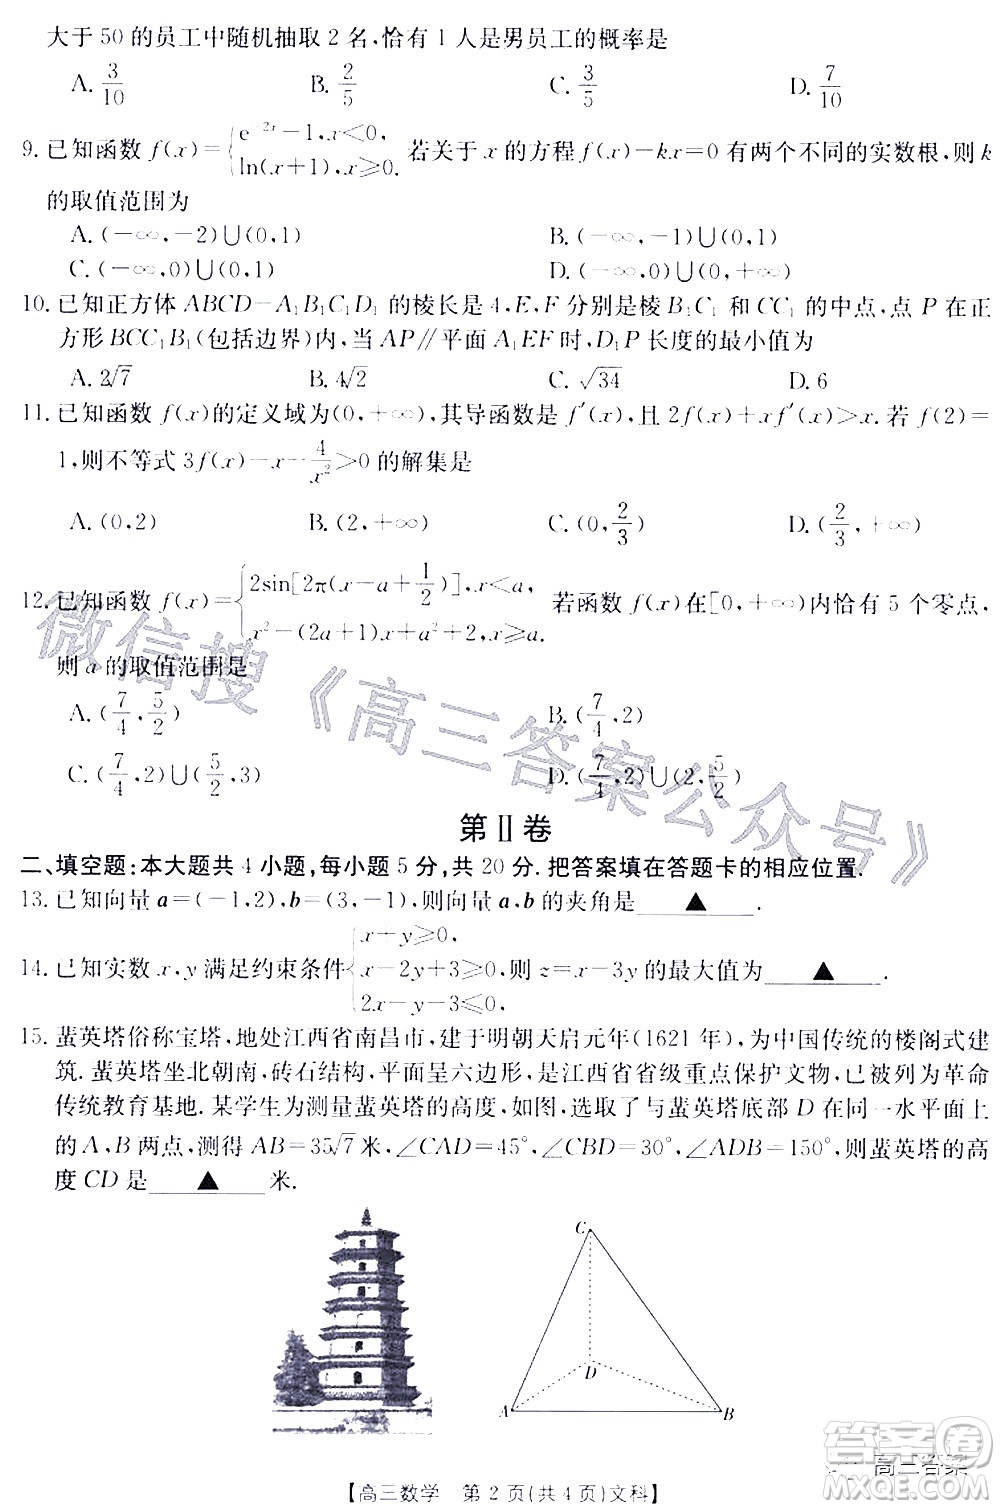 大于 50 的员工中随机抽取 2 名,恰有 1 人是男员工的概率是
A. 3/10 B. 2/5 C. 3/5 D. 7/10
9. 已知函数 f(x)={e^{-2x}-1,x<0, ln(x+1),x≥0. 若关于 x 的方程 f(x)-kx=0 有两个不同的实数根,则 k
的取值范围为
A. (-∞,-2)∪(0,1) B. (-∞,-1)∪(0,1)
C. (-∞,0)∪(0,1) D. (-∞,0)∪(0,+∞)
10. 已知正方体 ABCD-A₁B₁C₁D₁ 的棱长是 4,E,F 分别是棱 B₁C₁ 和 CC₁ 的中点,点 P 在正
方形 BCC₁B₁(包括边界)内,当 AP∥平面 A₁EF 时,D₁P 长度的最小值为
A. 2√7 B. 4√2 C. √34 D. 6
11. 已知函数 f(x)的定义域为(0,+∞),其导函数是 f′(x),且 2f(x)+xf′(x)>x. 若 f(2)=
1,则不等式 3f(x)-x-4/x²>0 的解集是
A. (0,2) B. (2,+∞) C. (0,2/3) D. (2/3,+∞)
12. 已知函数 f(x)={2sin[2π(x-a+1/2)],x<a, x²-(2a+1)x+a²+2,x≥a. 若函数 f(x)在[0,+∞)内恰有 5 个零点,
则 a 的取值范围是
A. (7/4,5/2) B. (7/4,2)
C. (7/4,2)∪(5/2,3) D. (7/4,2)∪(2,5/2)
第Ⅱ卷
二、填空题:本大题共 4 小题,每小题 5 分,共 20 分. 把答案填在答题卡的相应位置.
13. 已知向量 a=(-1,2),b=(3,-1),则向量 a,b 的夹角是 ▲ .
14. 已知实数 x,y 满足约束条件{x+y≥0, x-2y+3≥0, 2x-y-3≤0, 则 z=x-3y 的最大值为 ▲ .
15. 蜚英塔俗称宝塔,地处江西省南昌市,建于明朝天启元年(1621 年),为中国传统的楼阁式建
筑. 蜚英塔坐北朝南,砖石结构,平面呈六边形,是江西省省级重点保护文物,已被列为革命
传统教育基地. 某学生为测量蜚英塔的高度,如图,选取了与蜚英塔底部 D 在同一水平面上
的 A,B 两点,测得 AB=35√7 米,∠CAD=45°,∠CBD=30°,∠ADB=150°,则蜚英塔的高
度 CD 是 ▲ 米.
C
D
A B
【高三数学 第 2 页(共 4 页)文科】
微信搜《高三答案公众号》
答案圈
MXQE.COM
高三答案